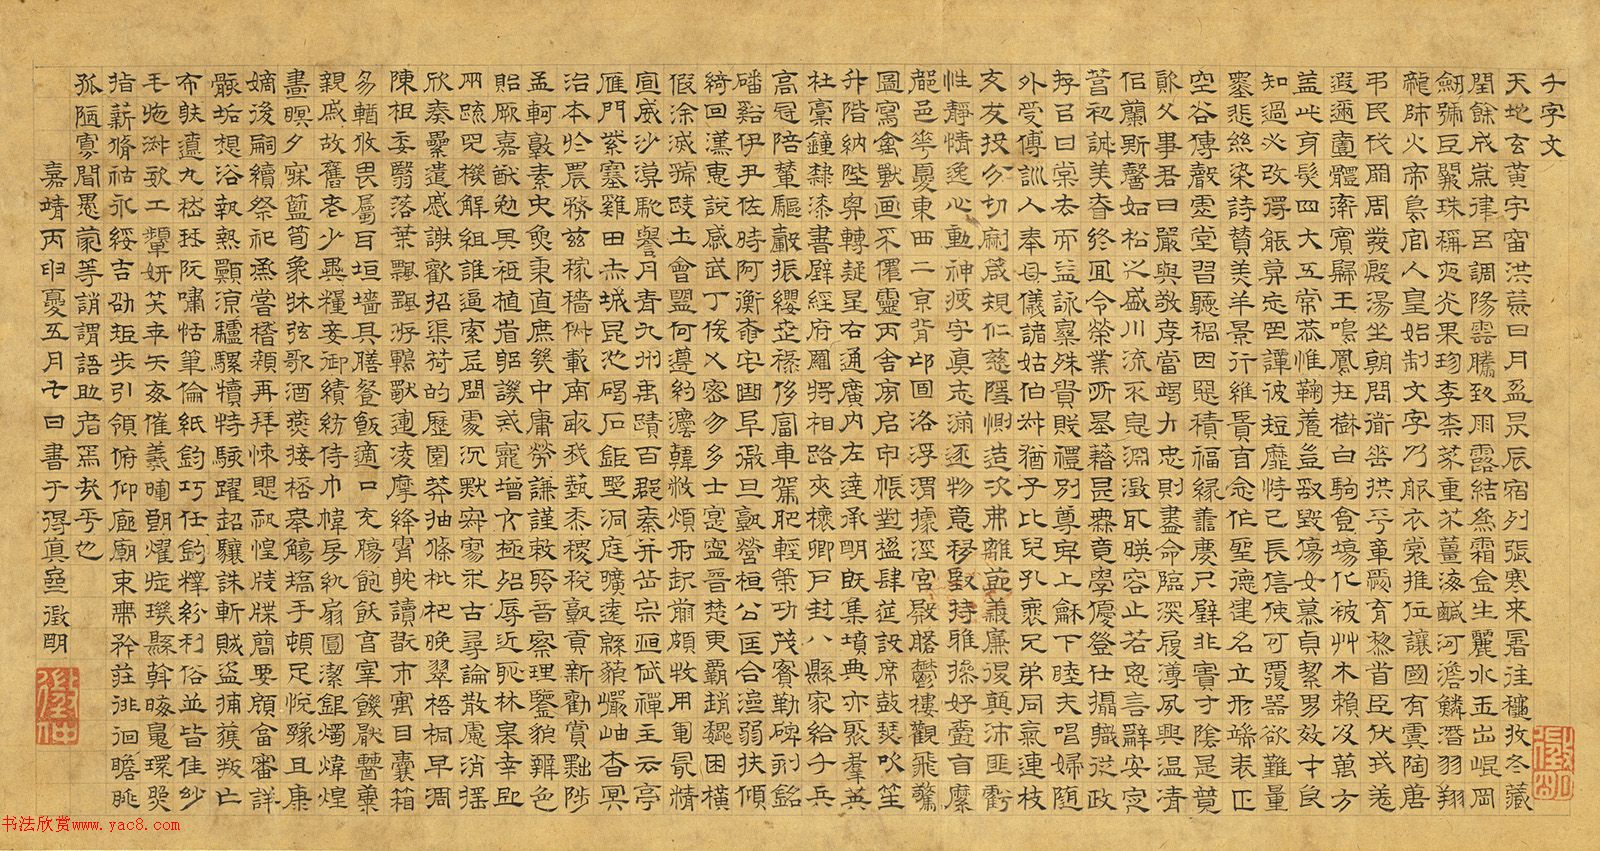 千字文
天地玄黃宇宙洪荒日月盈昃辰宿列張寒来暑往穐收冬藏
閏餘成歲律呂調陽雲騰致雨露結為霜金生麗水玉出崐岡
劒號巨闕珠稱夜光果珍李柰菜重芥薑海鹹河澹鱗潛羽翔
龍師火帝鳥官人皇始制文字乃服衣裳推位讓國有虞陶唐
弔民伐罪周發殷湯坐朝問道垂拱平章愛育黎首臣伏戎羌
遐邇壹體率賓歸王鳴鳳在樹白駒食場化被艸木賴及萬方
蓋此身髮四大五常恭惟鞠養豈敢毀傷女慕貞絜男效才良
知過必改得能莫忘罔談彼短靡恃己長信使可覆器欲難量
墨悲絲染詩賛美羊景行維賢克念作聖德建名立形端表正
空谷傳聲虛堂習聽禍因惡積福緣善慶尺璧非寶寸陰是競
資父事君曰嚴與敬孝當竭力忠則盡命臨深履薄夙興溫凊
佀蘭斯馨如松之盛川流不息淵澂取暎容止若思言辭安定
篤初誠美眘終宜令榮業所基藉甚無竟學優登仕攝職從政
存以甘棠去而益詠樂殊貴賤禮別尊卑上龢下睦夫唱婦隨
外受傅訓入奉母儀諸姑伯叔猶子比兒孔褱兄弟同氣連枝
交友投分切磨箴規仁慈隱惻造次弗離節義廉退顛沛匪虧
性靜情逸心動神疲守真志滿逐物意移堅持雅操好爵自縻
都邑華夏東西二京背邙面洛浮渭據涇宮殿盤鬱樓觀飛驚
圖寫禽獸畫采僊靈丙舍旁启甲帳對楹肆筵設席鼓瑟吹笙
升階納陛弁轉疑星右通廣內左達承明既集墳典亦聚羣英
杜稾鍾隸漆書壁經府羅將相路夾槐卿戶封八縣家給千兵
高冠陪輦驅轂振纓世祿侈富車駕肥輕策功茂實勒碑刻銘
磻谿伊尹佐時阿衡奄宅曲阜微旦孰營桓公匡合濟弱扶傾
綺回漢惠說感武丁俊乂密勿多士寔寍晉楚更霸趙魏困橫
假涂滅虢踐土會盟何遵約灋韓敝煩刑起翦頗牧用軍冣精
宣威沙漠馳譽丹青九州禹蹟百郡秦并岱宗恒岱禪主云亭
雁門紫塞雞田赤城昆池碣石鉅野洞庭曠遠緜藐巖岫杳冥
治本於農務茲稼穡俶載南畝我蓺黍稷稅孰貢新勸賞黜陟
孟軻敦素史魚秉直庶幾中庸勞謙謹敕聆音察理鑒貌辨色
貽厥嘉猷勉其祗植省躬譏誡寵增亢極殆辱近恥林皋幸即
兩疏見機解組誰逼索居閒處沉默寂寥求古尋論散慮消搖
欣奏纍遣慼謝歡招渠荷的歷園莽抽條枇杷晚翠梧桐早凋
陳根委翳落葉飄颻游鵾獨運凌摩絳霄耽讀翫市寓目囊箱
易輶攸畏屬耳垣墻具膳餐飯適口充腸飽飫亨宰饑厭糟糠
親戚故舊老少異糧妾御績紡侍巾帷房紈扇圓潔銀燭煒煌
晝瞑夕寐籃筍象牀弦歌酒燕接桮舉觴撟手頓足悅豫且康
嫡後嗣續祭祀烝嘗稽顙再拜悚懼恐惶牋牒簡要顧畣審詳
骸垢想浴執熱願涼驢騾犢特駭躍超驤誅斬賊盜捕獲叛亡
布射遼丸嵇琴阮嘯恬筆倫紙鈞巧任釣釋紛利俗並皆佳妙
毛施淑姿工顰妍笑年矢每催羲暉朗燿旋璣縣斡晦魄環照
指薪脩祜永綏吉劭矩步引領俯仰廊廟束帶矜莊徘徊瞻眺
孤陋寡聞愚蒙等誚謂語助者焉哉乎也
嘉靖丙申夏五月七日書于得真堂 徵明
书法欣赏www.yac8.com